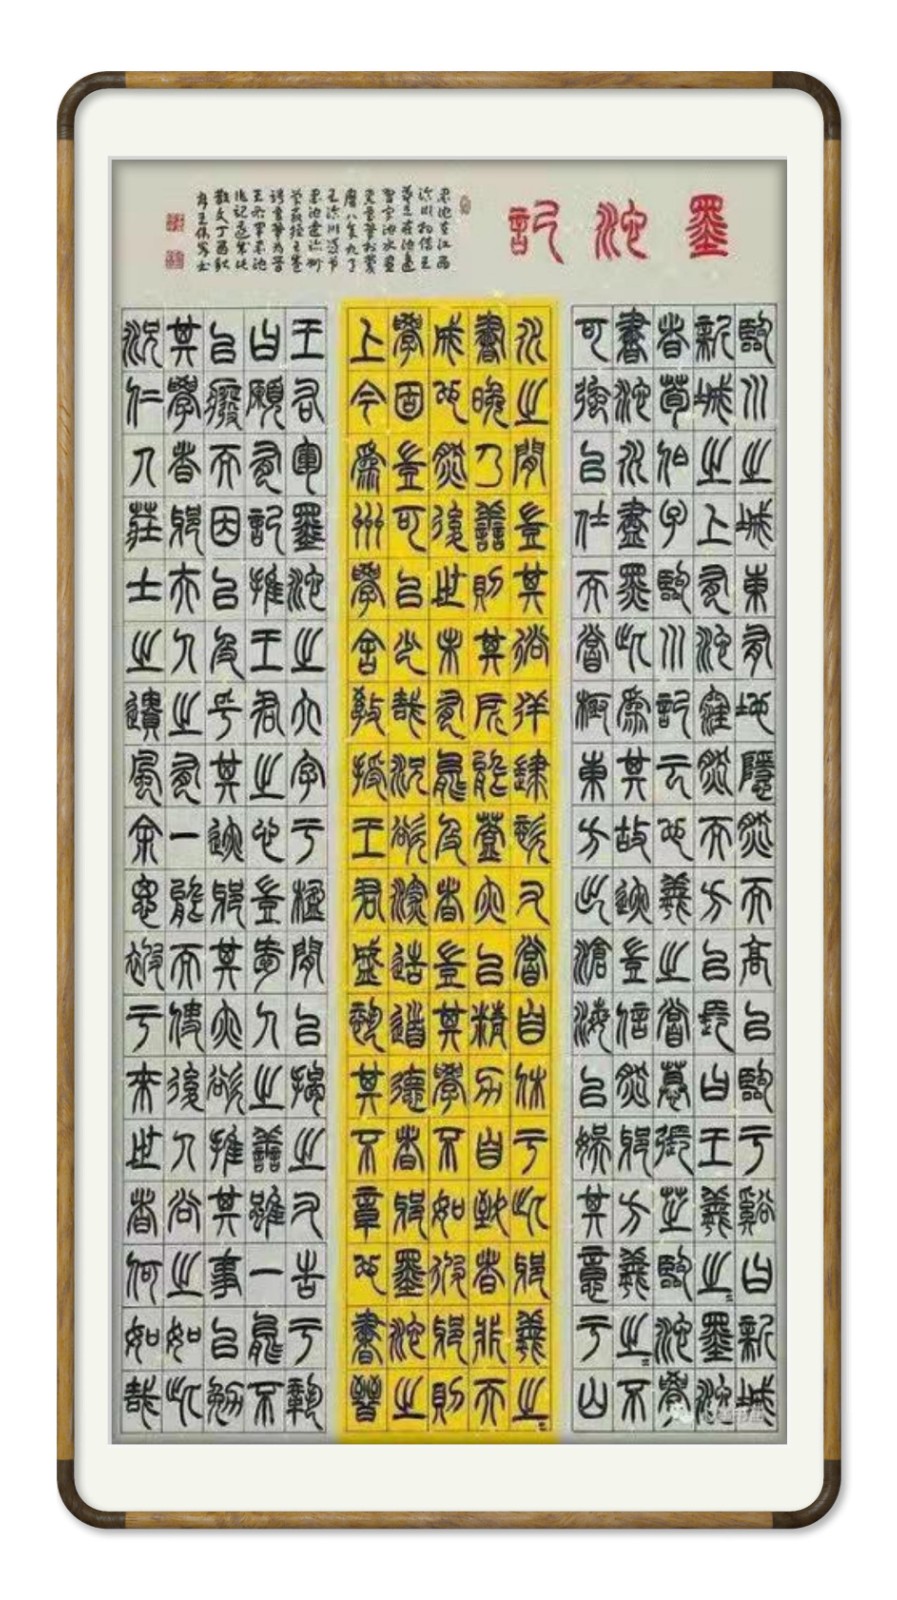 墨池記
墨池在江西
臨川相傳王
羲之在池邊
習字池水盡
請曾鞏為晉
王右軍墨池
散文丁酉秋
臨川之城東有地隱然而高以臨于谿曰新城
新城之上有池窪然而方以長曰王羲之墨池
者荀伯子臨川記云也羲之嘗慕張芝臨池學
書池水盡黑此為其故迹豈信然邪方羲之不
可強以仕而嘗極東方出滄海以娛其意于山
水之間豈其徜徉肆恣又嘗自休于此邪羲之
書晚乃善則其所能蓋亦以精力自致者非天
成也然後世未有能及者豈其學不如彼邪則
學固豈可以少哉況欲深造道德者邪墨池之
上今為州學舍教授王君盛恐其不章也書晉
王右軍墨池之六字于楹間以揭之又告于鞏
曰願有記推王君之心豈愛人之善雖一能不
以廢而因以及乎其迹邪其亦欲推其事以勉
其學者邪夫人之有一能而使後人尚之如此
況仁人莊士之遺風余思被于來世者何如哉